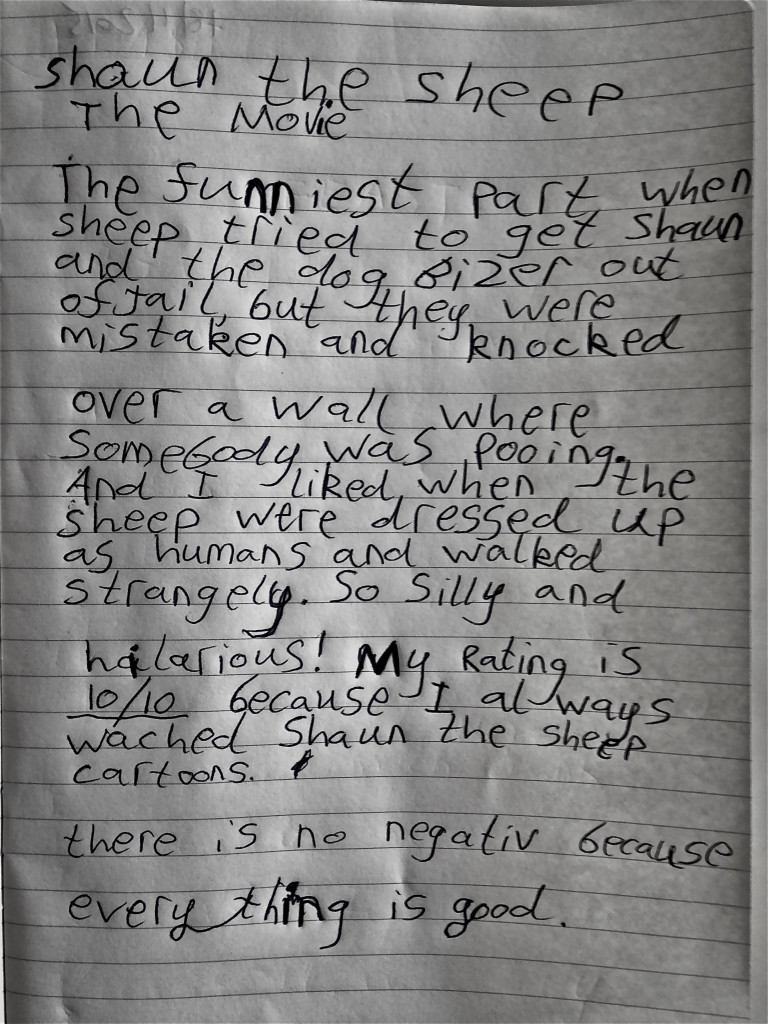 shaun the sheep
The Movie
The funniest part when
sheep tried to get Shaun
and the dog Bizer out
of jail, but they were
mistaken and knocked
over a wall where
somebody was pooing.
And I liked when the
sheep were dressed up
as humans and walked
strangely. So silly and
hilarious! My Rating is
10/10 because I always
wached Shaun the sheep
cartoons.
there is no negativ because
every thing is good.